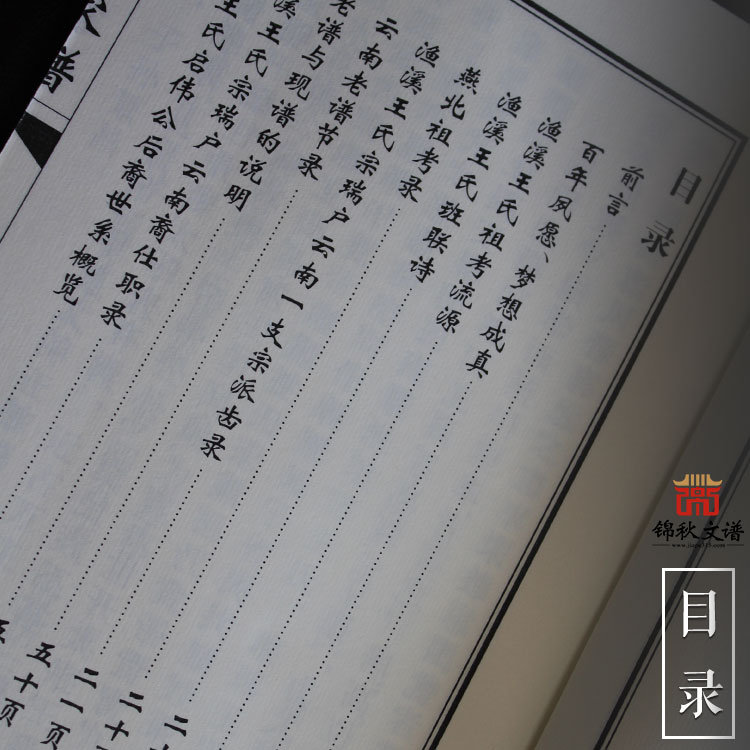 目录
前言
百年夙愿、梦想成真
渔溪王氏祖考流源
渔溪王氏班联诗
燕北祖考录
渔溪王氏宗瑞户云南一支宗派齿录
云南老谱节录
老谱与现谱的说明
溪王氏宗瑞户云南裔仕职录
王氏启伟公后裔世系概览
二十
二一页
五十页
谱
锦秋文谱
目录